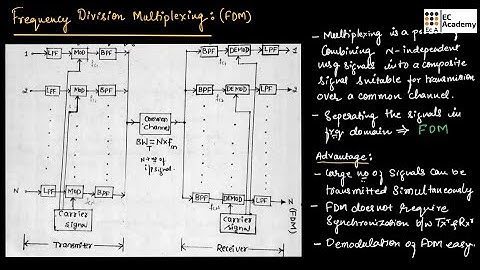 Frequency Division Multiplexing: (FDM)
EC Academy
EcA
1 LPF MOD BPF
fc1
2 LPF MOD BPF
fc2
N LPF MOD BPF
fcN
Carrier signal
Transmitter
Common channel
BWT = N×fm
N→ no of i/p signal.
BPF DEMOD LPF 1
fc1
BPF DEMOD LPF 2
fc2
BPF DEMOD LPF N
fcN
Carrier signal
Receiver
(FDM)
- Multiplexing is a
Combining N-independent
msg signals into a composite
signal suitable for transmission
over a common channel.
- Seperating the signals in
frq domain ⇒ FDM
Advantage:
- Large no of signals can be
transmitted simultaneously
- FDM does not require
Synchronization b/w Txr & Rxr
- Demodulation of FDM easy.